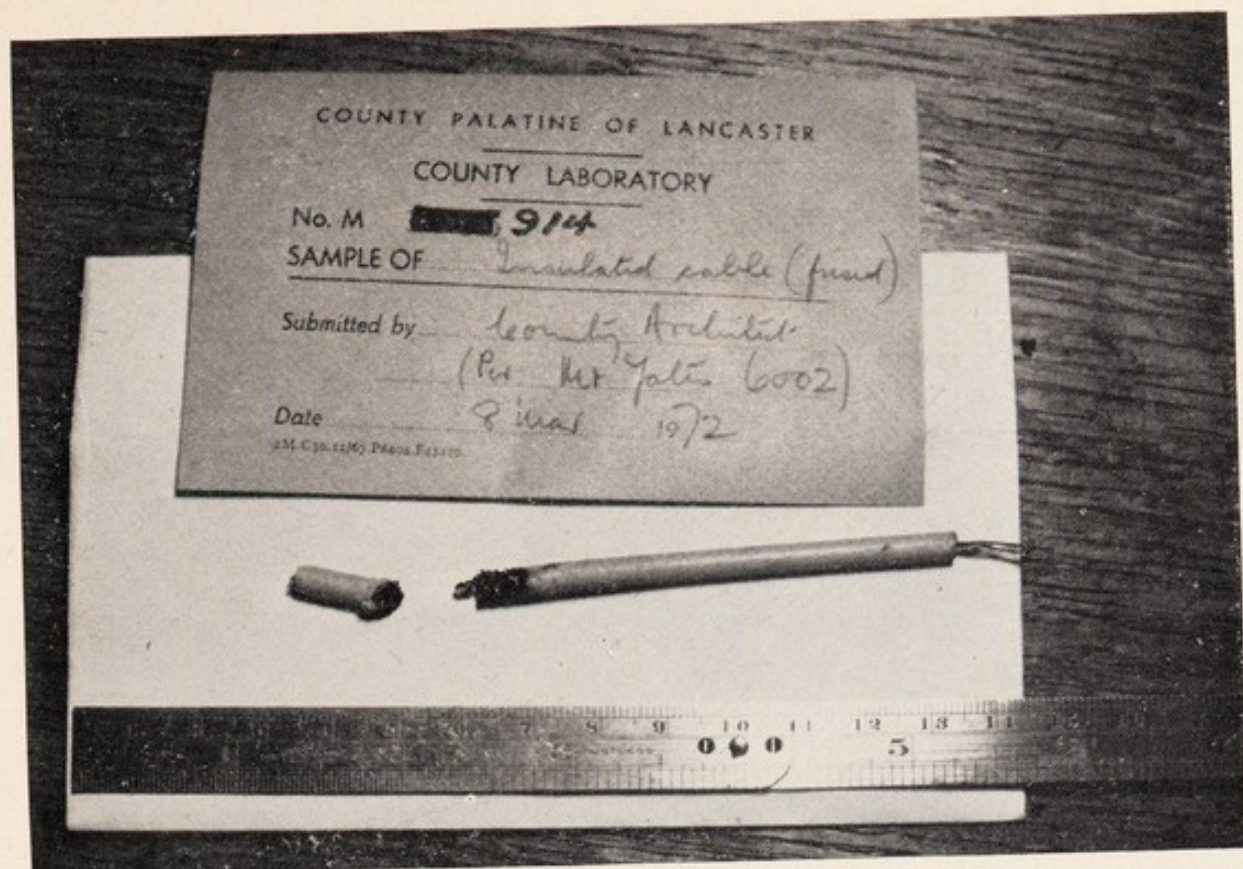 COUNTY PALATINE OF LANCASTER
COUNTY LABORATORY
No. M 914
SAMPLE OF Insulated cable (fused)
Submitted by County Architect
(Per Mr Yates 6002)
Date 8 Mar 1972
7 8 9 10 11 12 13 14 15
5